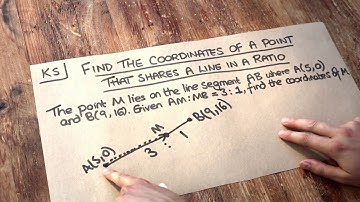 KS] FIND THE COORDINATES OF A POINT
THAT SHARES A LINE IN A RATIO
The point M lies on the line segment AB where A(5,0)
and B(9,16). Given AM:MB = 3:1, find the coordinates of M.
B(9,16)
M
3 : 1
A(5,0)